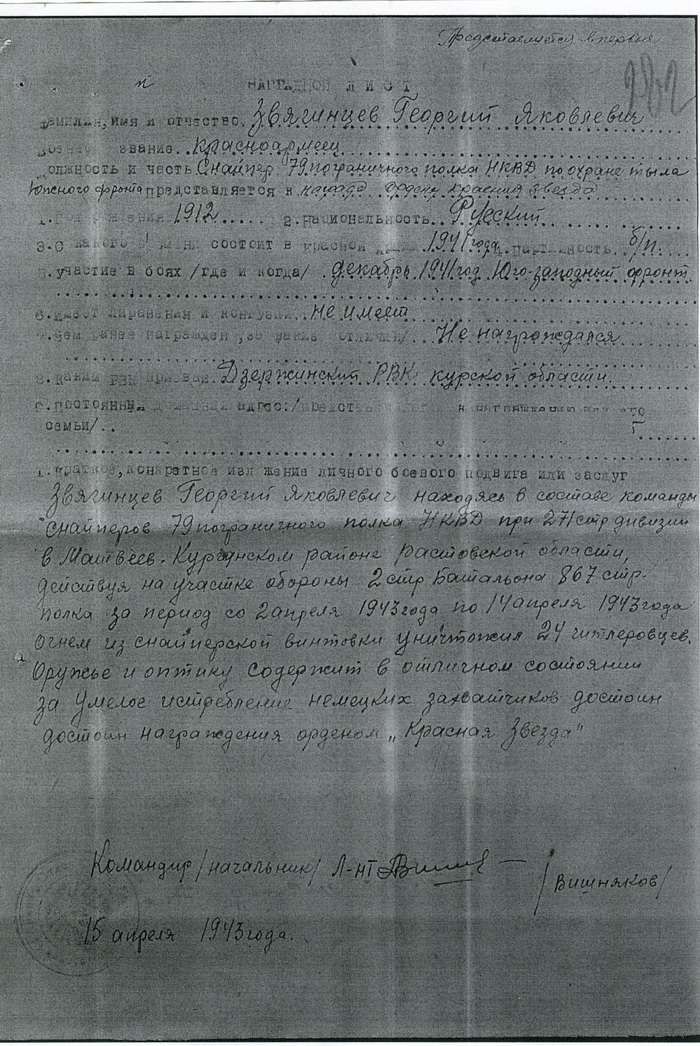 Представляется впервые
282
НАГРАДНОЙ ЛИСТ
Фамилия, имя и отчество. Звягинцев Георгий Яковлевич
звание. красноармеец
Должность и часть Снайпер 79 пограничного полка НКВД по охране тыла
Южного фронта представляется к наград. ордену красная звезда
1. Год рождения 1912..... 2. Национальность. Русский
3. С какого времени состоит в красной армии 1941 года 4. партийность б/п.
5. участие в боях /где и когда/. декабрь 1941 год Юго-западный фронт
6. Имеет ли ранения и контузии. не имеет
7. чем ранее награжден /за какие отличия/ Не награждался
8. Каким РВК призван. Дзержинский РВК курской области.
9. постоянный домашний адрес:/
семьи/..
1. Краткое, конкретное изложение личного боевого подвига или заслуг
Звягинцев Георгий Яковлевич находясь в составе команды
снайперов 79 пограничного полка НКВД при 271 стр дивизии
в Матвеев-Курганском районе Растовской области,
действуя на участке обороны 2 стр Батальона 867 стр.
полка за период со 2 апреля 1943 года по 14 апреля 1943 года
огнем из снайперской винтовки уничтожил 24 гитлеровцев.
Оружье и оптику содержит в отличном состоянии
за умелое истребление немецких захватчиков достоин
достоин награждения орденом „Красная Звезда"
Командир /начальник/ Л-нт
/Вишняков/
15 апреля 1943 года.